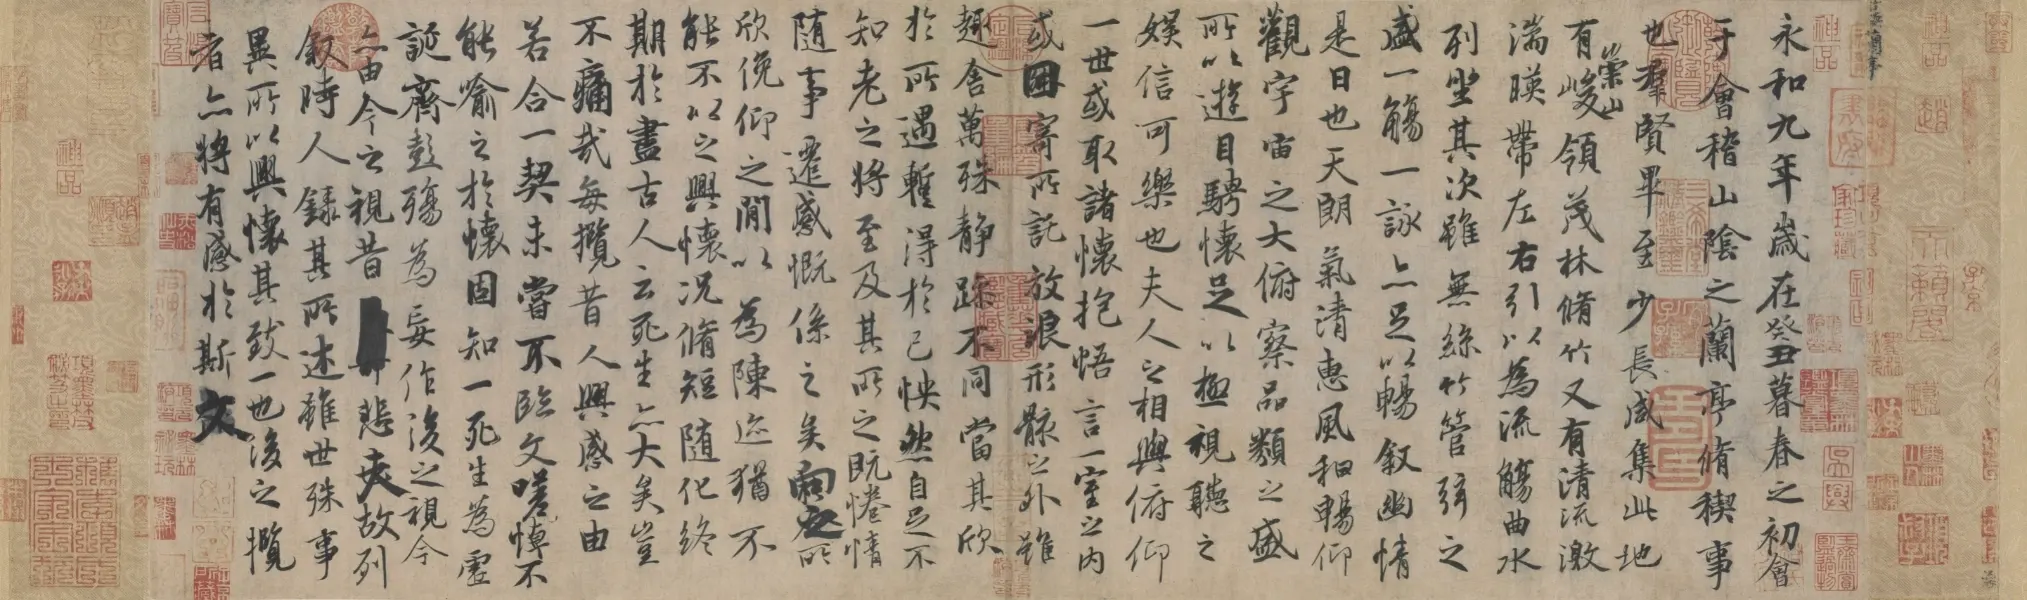 永和九年歲在癸丑暮春之初會
于會稽山陰之蘭亭脩稧事
也羣賢畢至少長咸集此地
有崇山峻領茂林脩竹又有清流激
湍暎帶左右引以為流觴曲水
列坐其次雖無絲竹管弦之
盛一觴一詠亦足以暢敘幽情
是日也天朗氣清惠風和暢仰
觀宇宙之大俯察品類之盛
所以遊目騁懷足以極視聽之
娛信可樂也夫人之相與俯仰
一世或取諸懷抱悟言一室之內
或因寄所託放浪形骸之外雖
趣舍萬殊靜躁不同當其欣
於所遇暫得於己怏然自足不
知老之將至及其所之既惓情
隨事遷感慨係之矣向之所
欣俛仰之閒以為陳迹猶不
能不以之興懷況脩短隨化終
期於盡古人云死生亦大矣豈
不痛哉每攬昔人興感之由
若合一契未嘗不臨文嗟悼不
能喻之於懷固知一死生為虛
誕齊彭殤為妄作後之視今
亦由今之視昔悲夫故列
敘時人錄其所述雖世殊事
異所以興懷其致一也後之攬
者亦將有感於斯文
神品
天籟閣